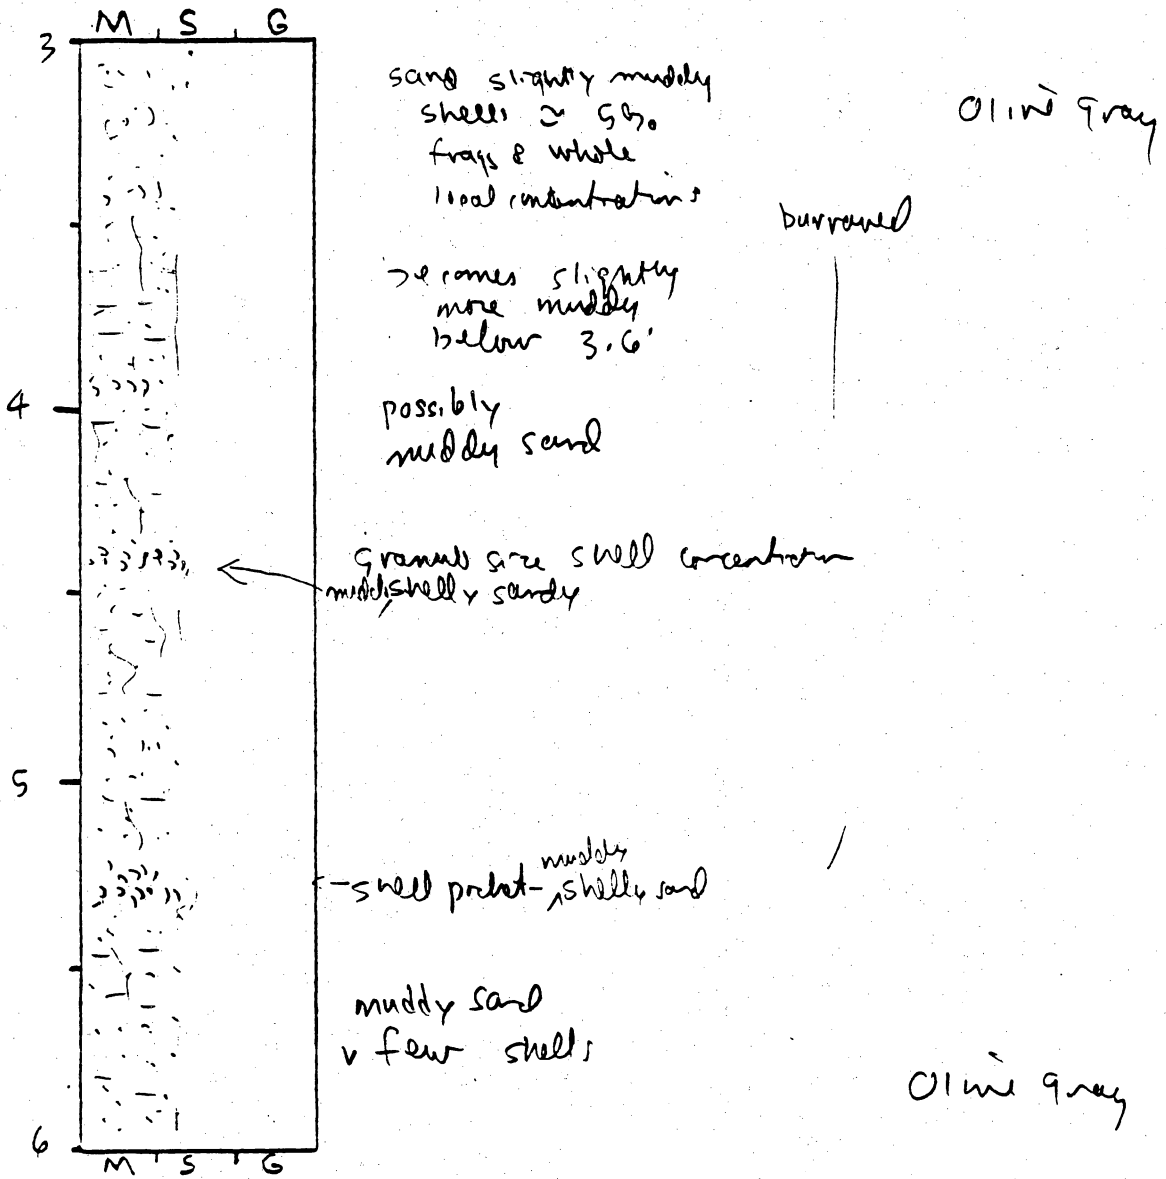 M S G
3
sand slightly muddy
shells ≃ 5%
frags & whole
local concentrations
Olive Gray
burrowed
becomes slightly
more muddy
below 3.6'
4
possibly
muddy sand
granule size shell concentration
muddy shelly sandy
5
shell pocket - muddy shelly sand
muddy sand
v few shells
Olive gray
6
M S G